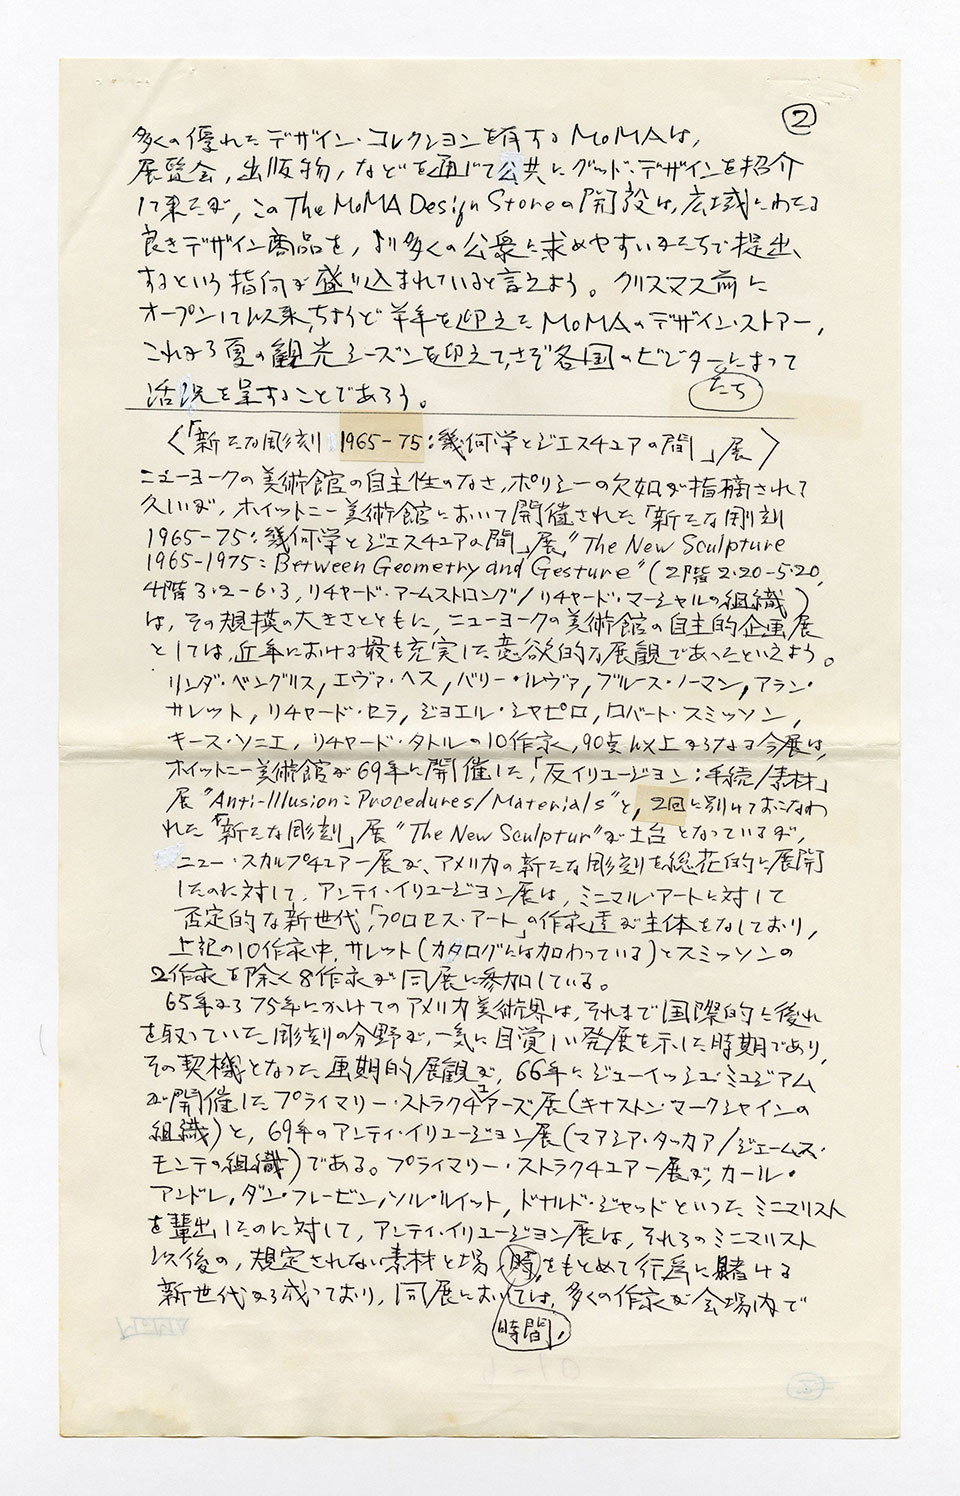 ②
多くの優れたデザイン・コレクションを有するMoMAは,
展覧会,出版物,などを通じて公共にグッド・デザインを紹介
して来たが,このThe MoMA Design Storeの開設は,広域にわたる
良きデザイン商品を,より多くの公衆に求めやすいかたちで提出,
するという指向が盛り込まれていると言えよう。クリスマス前に
オープンして以来,ちょうど半年を迎えたMoMAのデザイン・ストアー,
これから夏の観光シーズンを迎えて,さぞ各国のビジターによって
たち
活況を呈することであろう。
〈「新たな彫刻 1965-75:幾何学とジエスチュアの間」展〉
ニューヨークの美術館の自主性のなさ,ポリシーの欠如が指摘されて
久しいが,ホイットニー美術館において開催された「新たな彫刻
1965-75:幾何学とジエスチュアの間」展,"The New Sculpture
1965-1975:Between Geometry and Gesture"(2階2・20-5・20,
4階3・2-6・3,リチャード・アームストロング/リチャード・マーシャルの組織)
は,その規模の大きさとともに,ニューヨークの美術館の自主的企画展
としては,近年における最も充実した意欲的な展観であったといえよう。
リンダ・ベングリス,エヴァ・ヘス,バリー・ルヴァ,ブルース・ノーマン,アラン・
サレット,リチャード・セラ,ジョエル・シャピロ,ロバート・スミッソン,
キース・ソニエ,リチャード・タトルの10作家,90点以上からなる今展は,
ホイットニー美術館が69年に開催した,「反イリュージョン:手続/素材」
展"Anti-Illusion:Procedures/Materials"と,2回に別けておこなわ
れた「新たな彫刻」展"The New Sculptur"が土台となっているが,
ニュー・スカルプチュアー展が,アメリカの新たな彫刻を総花的に展開
したのに対して,アンティ・イリュージョン展は,ミニマル・アートに対して
否定的な新世代,「プロセス・アート」の作家達が主体をなしており,
上記の10作家中,サレット(カタログには加わっている)とスミッソンの
2作家を除く8作家が同展に参加している。
65年から75年にかけてのアメリカ美術界は,それまで国際的に後れ
を取っていた彫刻の分野が,一気に目覚しい発展を示した時期であり,
その契機となった画期的展観が,66年にジューイッシュ・ミュジアム
が開催したプライマリー・ストラクチュアーズ展(キナストン・マークシャインの
組織)と,69年のアンティ・イリュージョン展(マアシア・タッカア/ジェームス・
モンテの組織)である。プライマリー・ストラクチュアー展が,カール・
アンドレ,ダン・フレービン,ソル・ルイット,ドナルド・ジャッドといったミニマリスト
を輩出したのに対して,アンティ・イリュージョン展は,それらのミニマリスト
以後の,規定されない素材と場,時,をもとめて行為に賭ける
新世代から成っており,同展においては,多くの作家が会場内で
時間,